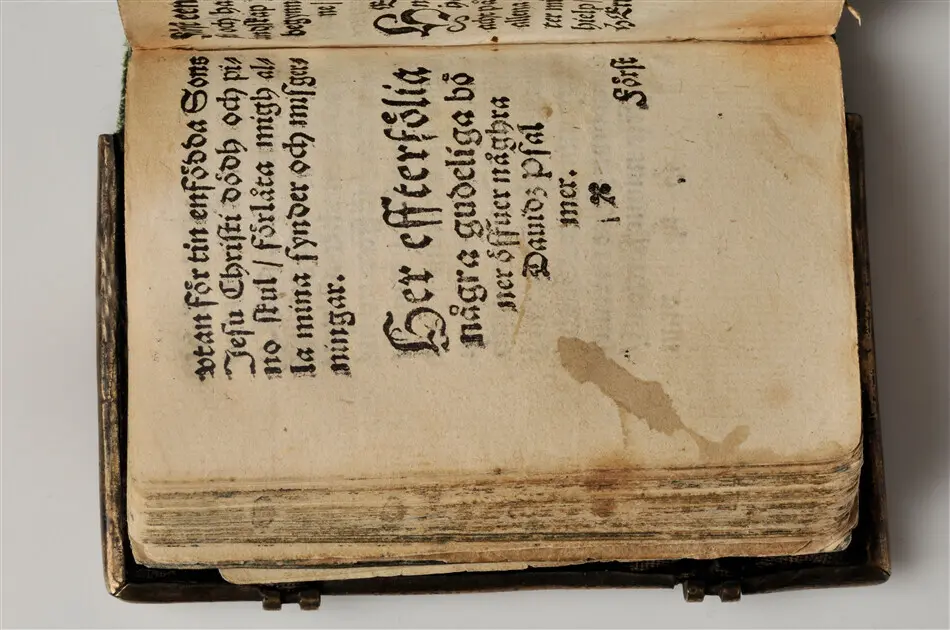 vtan för tin enfödda Sons
Jeſu Chriſti dödh och pi⸗
no ſkul / förlåta migh al⸗
la mina ſynder och miſger⸗
ningar.
Her effterfölia
några gudeliga bö
ner öffuer någhra
Dauidz pſal
mer.
Förſt